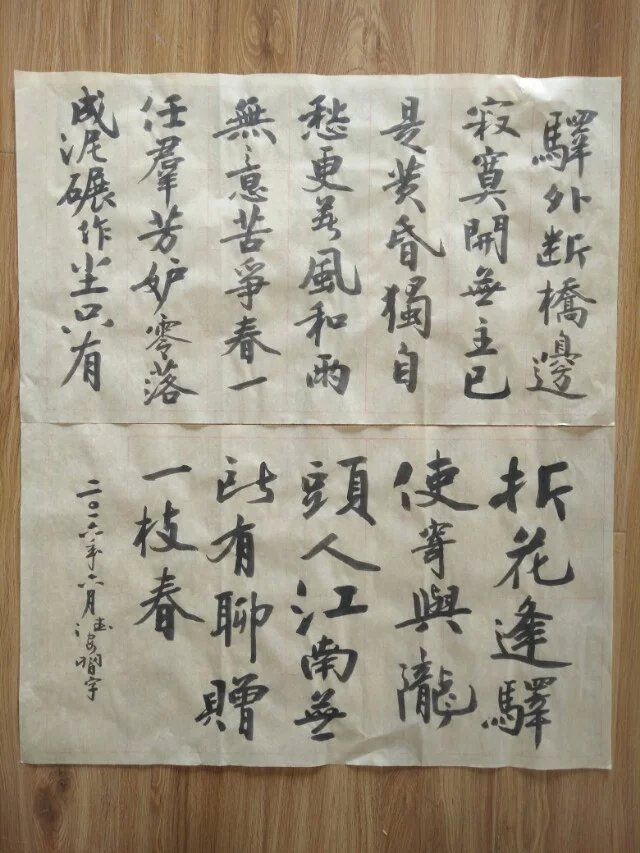 驛外断橋邊
寂寞開無主已
是黄昏獨自
愁更著風和雨
無意苦爭春一
任羣芳妒零落
成泥碾作尘只有
折花逢驛
使寄與隴
頭人江南無
所有聊贈
一枝春
二〇一六年六月習字